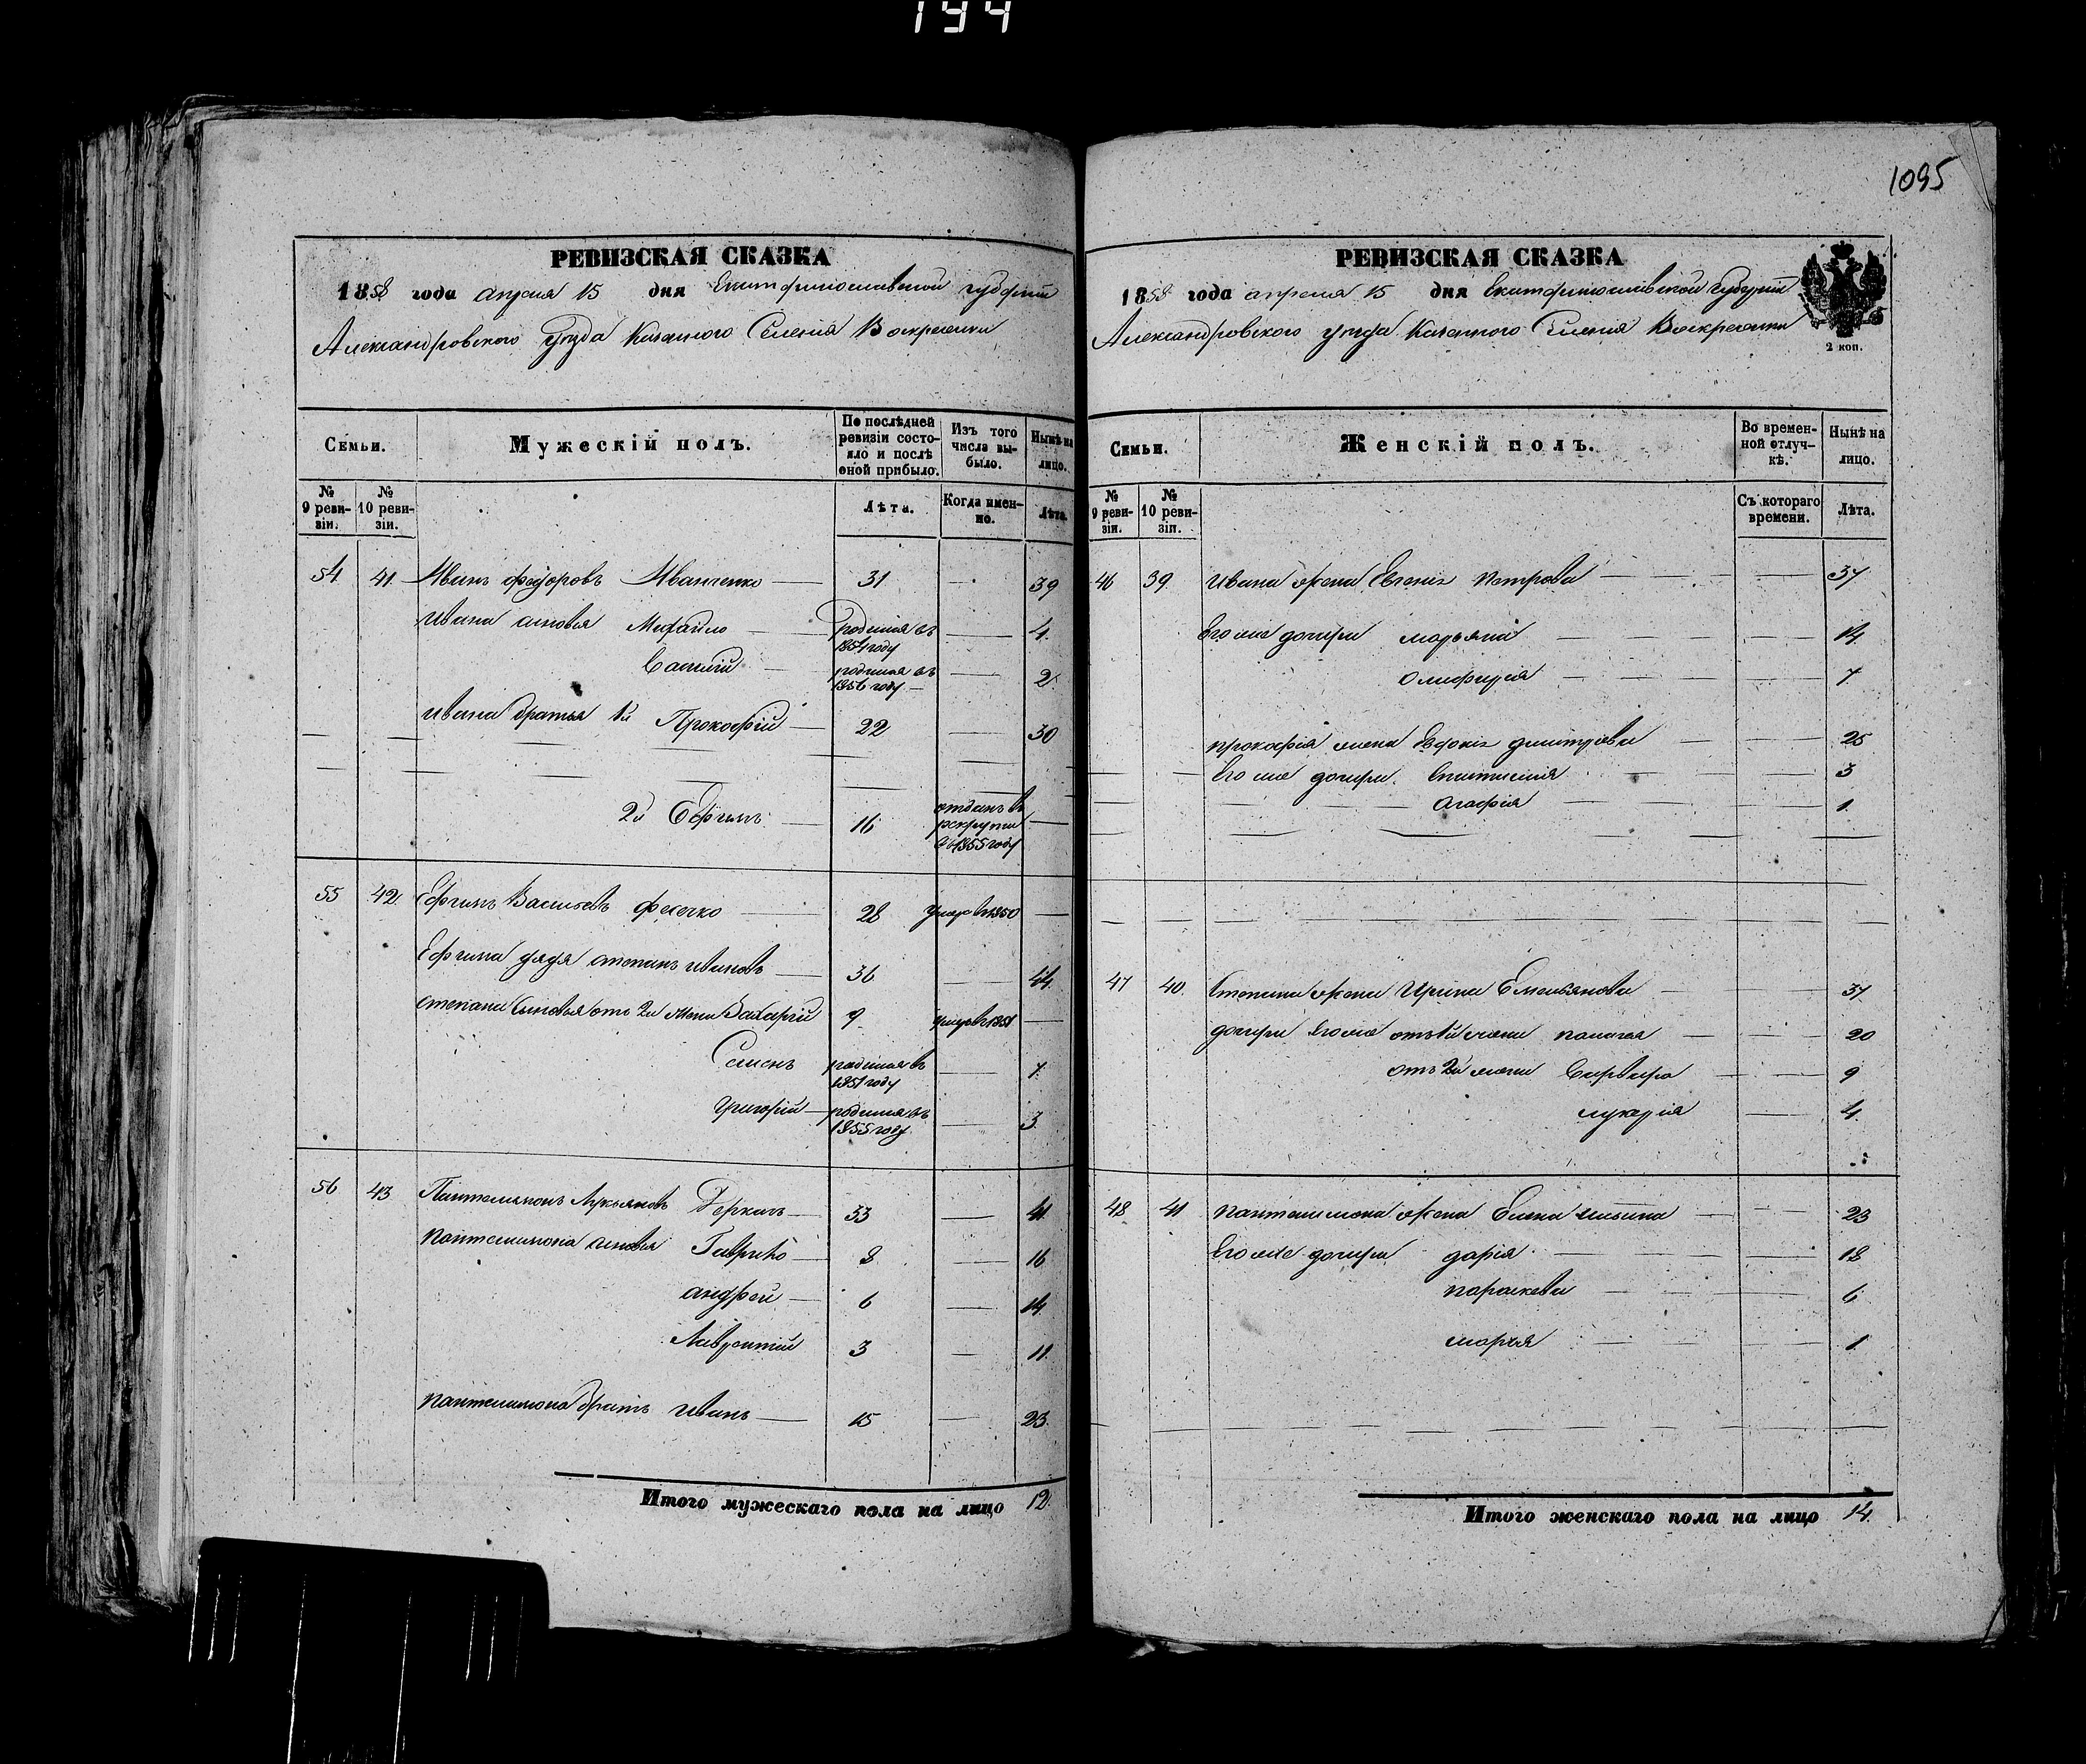 194
1095
РЕВИЗСКАЯ СКАЗКА
1858 года апреля 15 дня Екатеринославской губернии
Александровского уѣзда Казенного Селенія Воскресенки
Семьи. Мужескій полъ. По послѣдней ревизіи состояло и послѣ оной прибыло. Изъ того числа выбыло. Нынѣ на лицо.
№ 9 ревизіи. № 10 ревизіи. Лѣта. Когда именно. Лѣта.
54 41 Иванъ федоровъ Иванченко 31 39
Ивана сыновья Михайло родился въ 1854 году 4
Василій родился въ 1856 году 2
Ивана братья 1й Прокофій 22 30
2й Ефимъ 16 отданъ въ рекруты въ 1855 году
55 42 Ефимъ Васильевъ фесечко 28 умеръ в 1850
Ефима дядя степанъ ивановъ 36 44
степана Сыновья отъ 2й жены Захарій 9 умеръ в 1851
Семенъ родился въ 1851 году 7
григорій родился въ 1855 году 3
56 43 Пантелимонъ Лукьяновъ Деркачъ 33 41
Пантелимона сыновья Гаврило 8 16
андрей 6 14
Лаврентій 3 11
пантелимона братъ иванъ 15 23
Итого мужескаго пола на лицо 12
РЕВИЗСКАЯ СКАЗКА
1858 года апреля 15 дня Екатеринославской губерніи
Александровского уѣзда Казенного Селенія Воскресенки
2 коп.
Семьи. Женскій полъ. Во временной отлучкѣ. Нынѣ на лицо.
№ 9 ревизіи. № 10 ревизіи. Съ котораго времени. Лѣта.
46 39 Ивана жена Евгенія петрова 37
Его же дочери марьяна 14
7
прокофія жена Евдокія дмитрова 25
Его же дочери 3
агафія 1
47 40 Степана жена Ирина Емельянова 37
дочери его же отъ 1й жены палагея 20
отъ 2й жены варвара 9
лукерія 4
48 41 пантелимона жена Елена ильина 23
Его же дочери дарія 18
параскева 6
марья 1
Итого женскаго пола на лицо 14